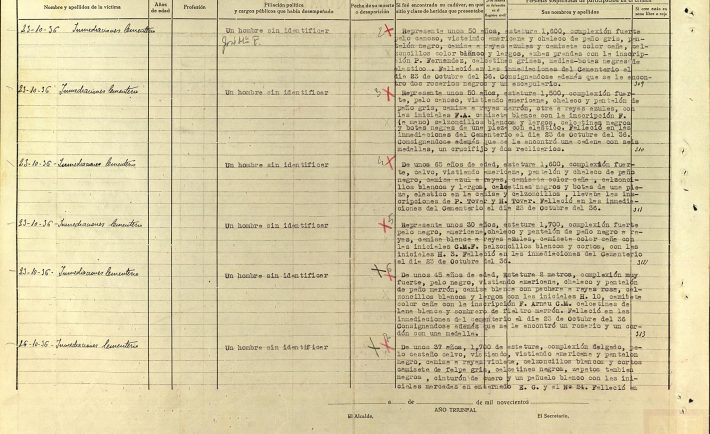 Nombre y apellidos de la víctima
Años de edad
Profesión
Filiación política
y cargos públicos que había desempeñado
Fecha de su muerte o desaparición
Si fué encontrado su cadáver, en que
sitio y clase de heridas que presentaba
Sus nombres y apellidos
23-10-36 Inmediaciones Cementerio
Un hombre sin identificar
2
Represente unos 50 años, estatura 1,600, complexión fuerte
pelo canoso, vistiendo americana y chaleco de paño gris, pan-
talón negro, camisa a rayas azules y camiseta color caña, cal-
zoncillos color blanco y largos, ambas prendas con la inscrip-
ción P. Fernandez, calcetines grises, medias-botas negras de
elastico . Falleció en las inmediaciones del Cementerio el
dia 23 de Octubre del 36. Consignandose además que se le encon-
tro dos rosarios negros y un escapulario.
309
23-10-36 Inmediaciones Cementerio
Un hombre sin identificar
3
Represente unos 50 años, estatura 1,600, complexión fuer-
te, pelo canoso, vistiendo americana, chaleco y pantalón de
paño gris, camisa a rayas marrón, otra a rayas azules, con
las iniciales F.A. camiseta blanca con la inscripción F.
(a mano) calzoncillos blancos y largos, calcetines negros
y botas negras de una pieza con elastico. Falleció en las
inmediaciones del Cementerio el dia 23 de Octubre del 36.
Consignandose además que se le encontró una cadena con seis
medallas, un crusifijo y dos relicarios.
310
23-10-36 Inmediaciones Cementerio
Un hombre sin identificar
4
De unos 65 años de edad, estatura 1,600, complexión fuer-
te, calvo, vistiendo americana, pantalón y chaleco de paño
negro, camisa azul a rayas, camiseta color caña, calzonci-
llos blancos y largos, calcetines negros y botas de una pie-
za, elastico en la camisa y calzoncillos, llevaba las ins-
cripciones de P. Tovar y H. Tovar. Falleció en las inmedia-
ciones del Cementerio el dia 23 de Octubre del 36.
311
23-10-36 Inmediaciones Cementerio
Un hombre sin identificar
5
Represente unos 30 años, estatura 1,700, complexión fuerte
pelo negro, americana, chaleco y pantalón de paño negro a ra-
yas, camisa blanca a rayas azules, camiseta color caña con
las iniciales C.M.F. calzoncillos blancos y cortos, con las
iniciales H. 3. Falleció en las inmediaciones del Cementerio
el dia 23 de Octubre del 36.
23-10-36 Inmediaciones Cementerio
Un hombre sin identificar
De unos 45 años de edad, estatura 2 metros, complexión muy
fuerte, pelo negro, vistiendo americana, chaleco y pantalón
de paño marrón, camisa blanca con pechera a rayas rosa, cal-
zoncillos blancos y largos con las iniciales H. 10, camiseta
color caña con la inscripción F. Arnau C.M. calcetines de
lana blanca y sombrero de fieltro marrón. Falleció en las
inmediaciones del cementerio el dia 23 de Octubre del 36
Consignandose además que se le encontró un rosario y un cor-
dón con una medalla.
313
26-10-36 Inmediaciones Cementerio
Un hombre sin identificar
De unos 37 años, 1,700 de estatura, complexión delgado, pe-
lo castaño calvo, vistiendo, vistiendo americana y pantalon
negro, camisa a rayas violeta, calzoncillos blancos y cortos
camiseta de felpa gris, calcetines negros, zapatos tambien
negros , cinturón de cuero y un pañuelo blanco con las ini-
ciales marcadas en encarnado E. G. y el Nº 24. Falleció en
a de de mil novecientos
AÑO TRIUNFAL
El Alcalde,
El Secretario,